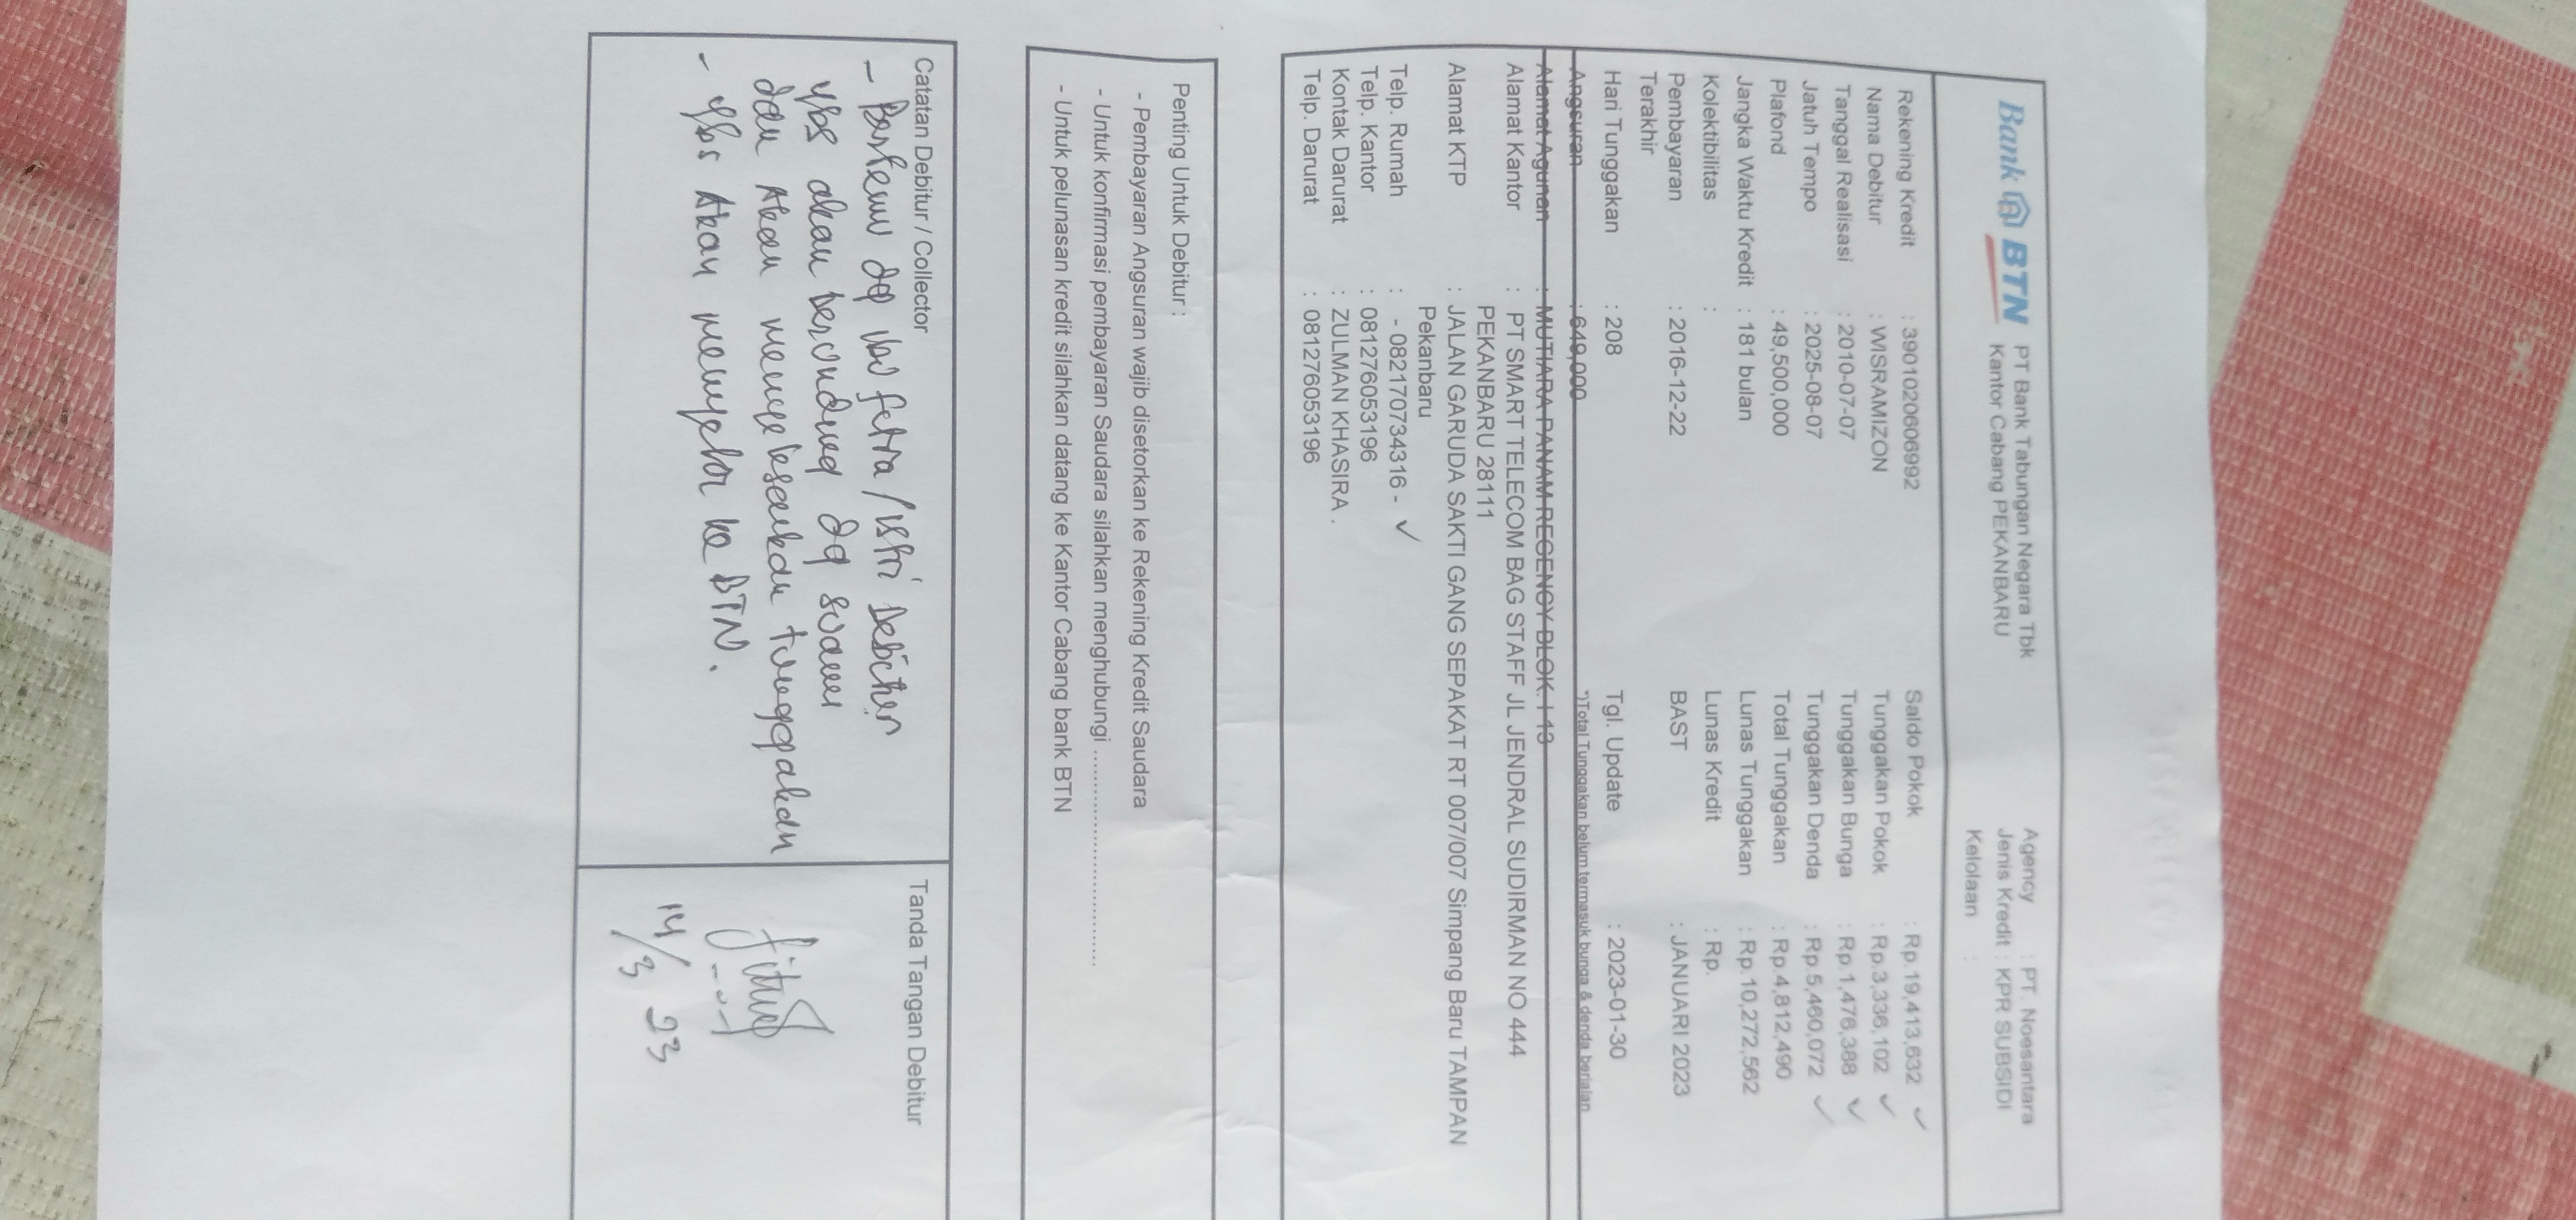 Bank BTN PT Bank Tabungan Negara Tbk
Kantor Cabang PEKANBARU
Agency : PT. Noesantara
Jenis Kredit : KPR SUBSIDI
Kelolaan :
Rekening Kredit : 3901020606992 Saldo Pokok : Rp.19,413,632 ✓
Nama Debitur : WISRAMIZON Tunggakan Pokok : Rp.3,336,102 ✓
Tanggal Realisasi : 2010-07-07 Tunggakan Bunga : Rp.1,476,388 ✓
Jatuh Tempo : 2025-08-07 Tunggakan Denda : Rp.5,460,072 ✓
Plafond : 49,500,000 Total Tunggakan : Rp.4,812,490
Jangka Waktu Kredit : 181 bulan Lunas Tunggakan : Rp.10,272,562
Kolektibilitas : Lunas Kredit : Rp.
Pembayaran : 2016-12-22 BAST : JANUARI 2023
Terakhir
Hari Tunggakan : 208 Tgl. Update : 2023-01-30
Angsuran : 649,000 *)Total Tunggakan belum termasuk bunga & denda berjalan
Alamat Agunan : MUTIARA PANAM REGENCY BLOK. I 13
Alamat Kantor : PT SMART TELECOM BAG STAFF JL JENDRAL SUDIRMAN NO 444
PEKANBARU 28111
Alamat KTP : JALAN GARUDA SAKTI GANG SEPAKAT RT 007/007 Simpang Baru TAMPAN
Pekanbaru
Telp. Rumah : - 082170734316 - ✓
Telp. Kantor : 081276053196
Kontak Darurat : ZULMAN KHASIRA .
Telp. Darurat : 081276053196
Penting Untuk Debitur :
- Pembayaran Angsuran wajib disetorkan ke Rekening Kredit Saudara
- Untuk konfirmasi pembayaran Saudara silahkan menghubungi ..............................
- Untuk pelunasan kredit silahkan datang ke Kantor Cabang bank BTN
Catatan Debitur / Collector
Tanda Tangan Debitur
- Bertemu dg ibu fetra / istri Debitur
ybs akan berunding dg suami
dan Akan menyelesaikan tunggakan
- ybs Akan menyetor ke BTN.
14/3 23